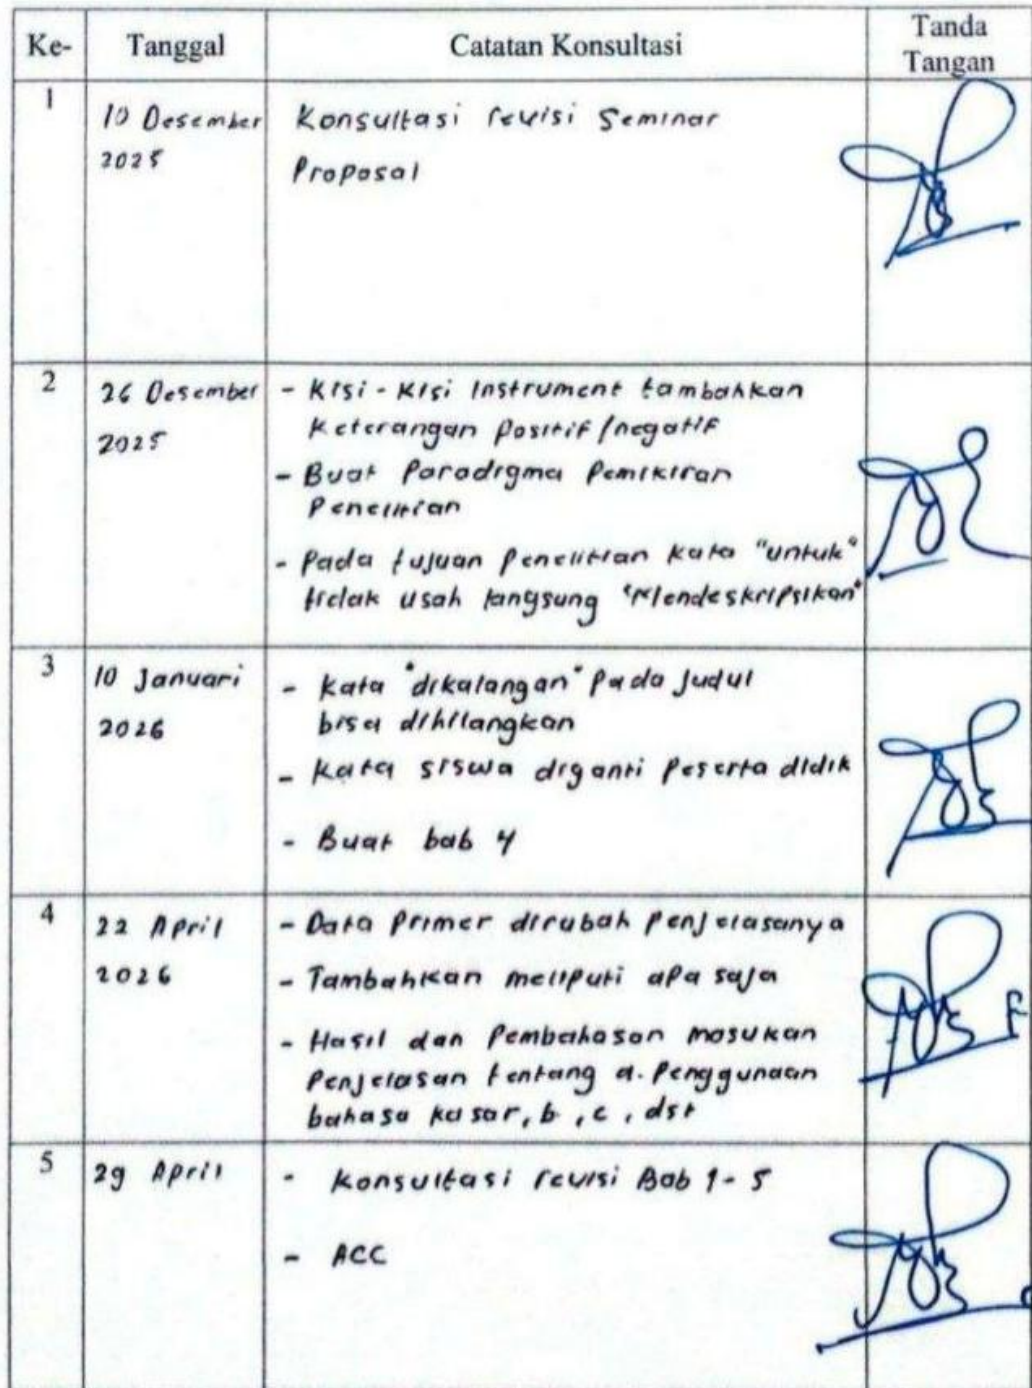 Ke- Tanggal Catatan Konsultasi Tanda Tangan
1
10 Desember
2025
Konsultasi revisi Seminar
Proposal
2
26 Desember
2025
- Kisi-Kisi Instrument tambahkan
Keterangan Positif/negatif
- Buat Paradigma Pemikiran
Penelitian
- Pada tujuan Penelitian kata "untuk"
tidak usah langsung "Mendeskripsikan"
3
10 Januari
2026
- Kata "dikalangan" Pada Judul
bisa dihilangkan
- Kata siswa diganti Peserta didik
- Buat bab 4
4
22 April
2026
- Data Primer dirubah Penjelasanya
- Tambahkan meliputi apa saja
- Hasil dan Pembahasan masukan
Penjelasan tentang a. Penggunaan
bahasa kasar, b, c, dst
5
29 April
- Konsultasi revisi Bab 1-5
- ACC